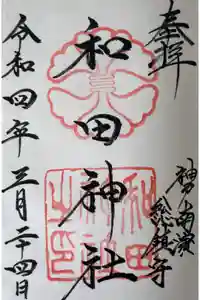 奉拝
神戸南浜
総鎮守
和田神社
和田神社之印
令和四年三月二十四日